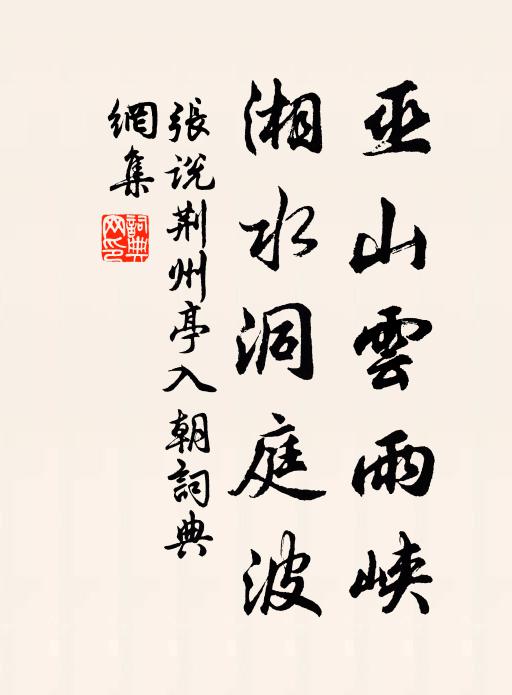 巫山雲雨峽
湘水洞庭波
張說荆州亭入朝詞典
網集
詞典網印